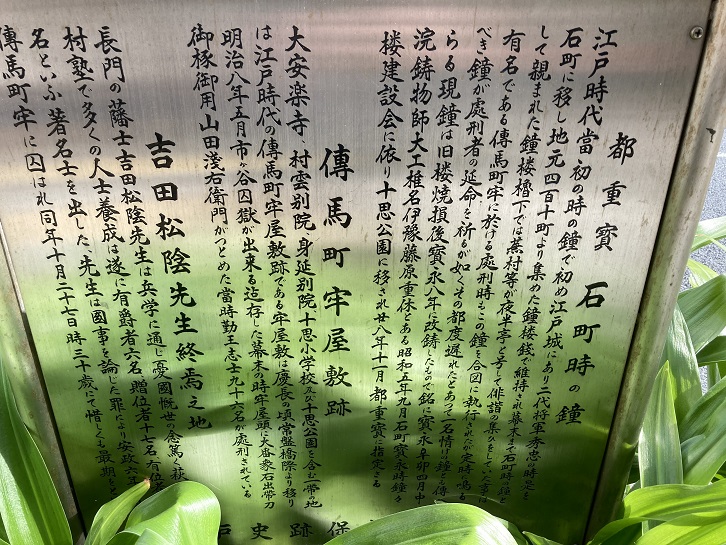 都重寳 石町時の鐘
江戸時代當初の時の鐘で初め江戸城にあり二代将軍秀忠の時是を
石町に移し地元四百十町より集めた鐘楼銭で維持され幕末まで石町時の鐘と
して親まれた鐘楼櫓下では蕪村等が夜半亭と号して俳諧の集ひをしていた
有名である傳馬町牢に於ける處刑時もこの鐘を合図に執行された定時に鳴る
べき鐘が處刑者の延命を祈るが如くその都度遅れたとあって一名情けの鐘と傳
らる現鐘は旧楼焼損後寳永八年に改鋳したもので銘に寳永辛卯四月中
浣鋳物師大工椎名伊豫藤原重休とある昭和五年九月石町寳永時鐘々
楼建設会に依り十思公園に移され廿八年十一月都重寳に指定さる
傳馬町牢屋敷跡
大安楽寺、村雲別院、身延別院、十思小学校及び十思公園を含む一帯の地
は江戸時代の傳馬町牢屋敷跡である牢屋敷は慶長の頃常盤橋際より移り
明治八年五月市ヶ谷囚獄が出来る迄存した幕末の時牢屋頭に大番家石出帯刀
御椓御用山田淺右衛門がつとめた當時勤王志士九十六名が處刑されている
吉田松陰先生終焉之地
長門の藩士吉田松陰先生は兵学に通じ憂國慨世の念篤く萩
村塾で多くの人士養成は遂に有爵者六名贈位者十七名有位
名といふ著名士を出した、先生は國事を論じた罪により安政六
傳馬町牢に囚はれ同年十月二十七日時三十歳にて惜しくも最期を
石史跡保